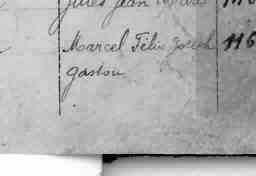 Jules Jean
Marcel Félix Joseph 116
Gaston